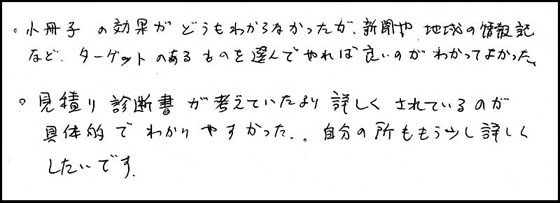 。小冊子の効果がどうもわからなかったが、新聞や地域の情報記
など、ターゲットのあるものを選んでやれば良いのがわかってよかった。
。見積り診断書が考えていたより詳しくされているのが
具体的でわかりやすかった。。自分の所ももう少し詳しく
したいです。